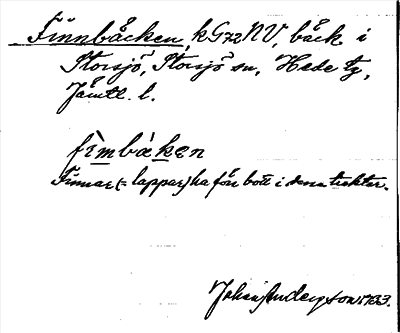 Finnbäcken, kG72NV, bäck i
Storsjö, Storsjö sn, Hede tg,
Jämtl. l.
fìmbàkən
Finnar (= lappar) ha förr bott i dessa trakter.
Johan Anderson 1933.